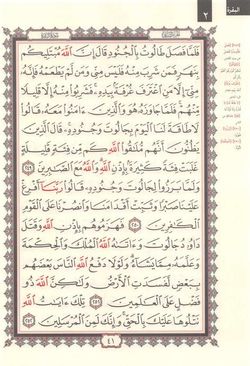 البقرة
٢
فَلَمَّا فَصَلَ طَالُوتُ بِٱلْجُنُودِ قَالَ إِنَّ ٱللَّهَ مُبْتَلِيكُم
بِنَهَرٍ فَمَن شَرِبَ مِنْهُ فَلَيْسَ مِنِّى وَمَن لَّمْ يَطْعَمْهُ فَإِنَّهُۥ
مِنِّىٓ إِلَّا مَنِ ٱغْتَرَفَ غُرْفَةًۢ بِيَدِهِۦ ۚ فَشَرِبُوا۟ مِنْهُ إِلَّا قَلِيلًا
مِّنْهُمْ ۚ فَلَمَّا جَاوَزَهُۥ هُوَ وَٱلَّذِينَ ءَامَنُوا۟ مَعَهُۥ قَالُوا۟
لَا طَاقَةَ لَنَا ٱلْيَوْمَ بِجَالُوتَ وَجُنُودِهِۦ ۚ قَالَ ٱلَّذِينَ
يَظُنُّونَ أَنَّهُم مُّلَـٰقُوا۟ ٱللَّهِ كَم مِّن فِئَةٍ قَلِيلَةٍ
غَلَبَتْ فِئَةً كَثِيرَةًۢ بِإِذْنِ ٱللَّهِ ۗ وَٱللَّهُ مَعَ ٱلصَّـٰبِرِينَ ٢٤٩
وَلَمَّا بَرَزُوا۟ لِجَالُوتَ وَجُنُودِهِۦ قَالُوا۟ رَبَّنَآ أَفْرِغْ
عَلَيْنَا صَبْرًا وَثَبِّتْ أَقْدَامَنَا وَٱنصُرْنَا عَلَى ٱلْقَوْمِ
ٱلْكَـٰفِرِينَ ٢٥٠ فَهَزَمُوهُم بِإِذْنِ ٱللَّهِ وَقَتَلَ
دَاوُۥدُ جَالُوتَ وَءَاتَىٰهُ ٱللَّهُ ٱلْمُلْكَ وَٱلْحِكْمَةَ
وَعَلَّمَهُۥ مِمَّا يَشَآءُ ۗ وَلَوْلَا دَفْعُ ٱللَّهِ ٱلنَّاسَ بَعْضَهُم
بِبَعْضٍ لَّفَسَدَتِ ٱلْأَرْضُ وَلَـٰكِنَّ ٱللَّهَ ذُو
فَضْلٍ عَلَى ٱلْعَـٰلَمِينَ ٢٥١ تِلْكَ ءَايَـٰتُ ٱللَّهِ
نَتْلُوهَا عَلَيْكَ بِٱلْحَقِّ ۚ وَإِنَّكَ لَمِنَ ٱلْمُرْسَلِينَ ٢٥٢
٤١